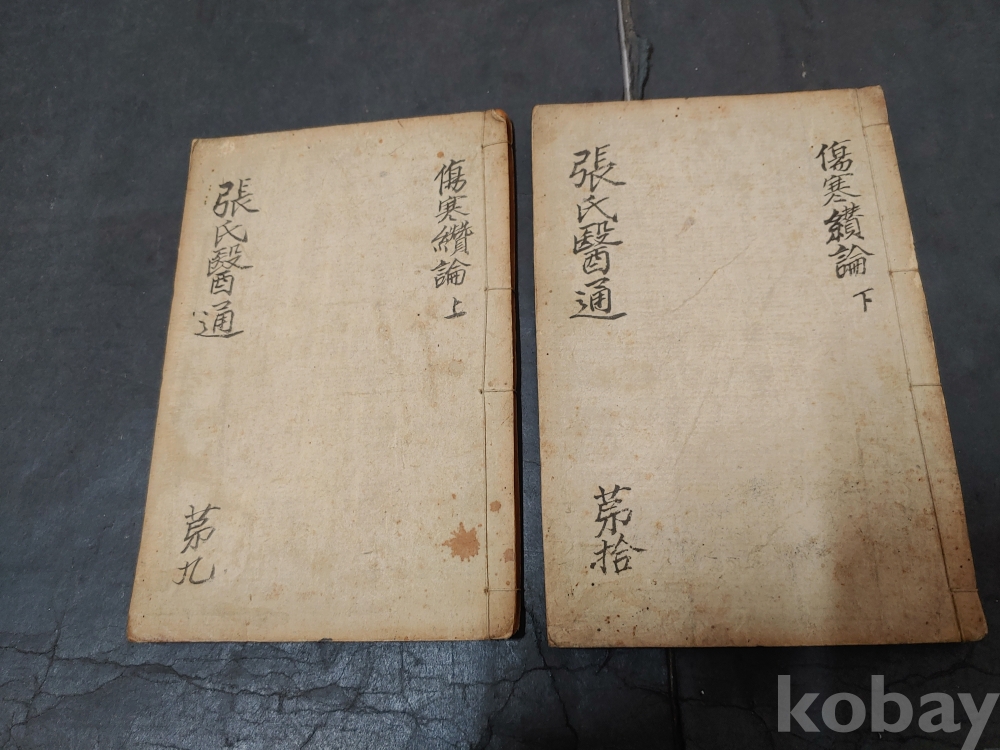 傷寒纘論 上
張氏醫通
苐九
傷寒纘論 下
張氏醫通
苐拾
kobay